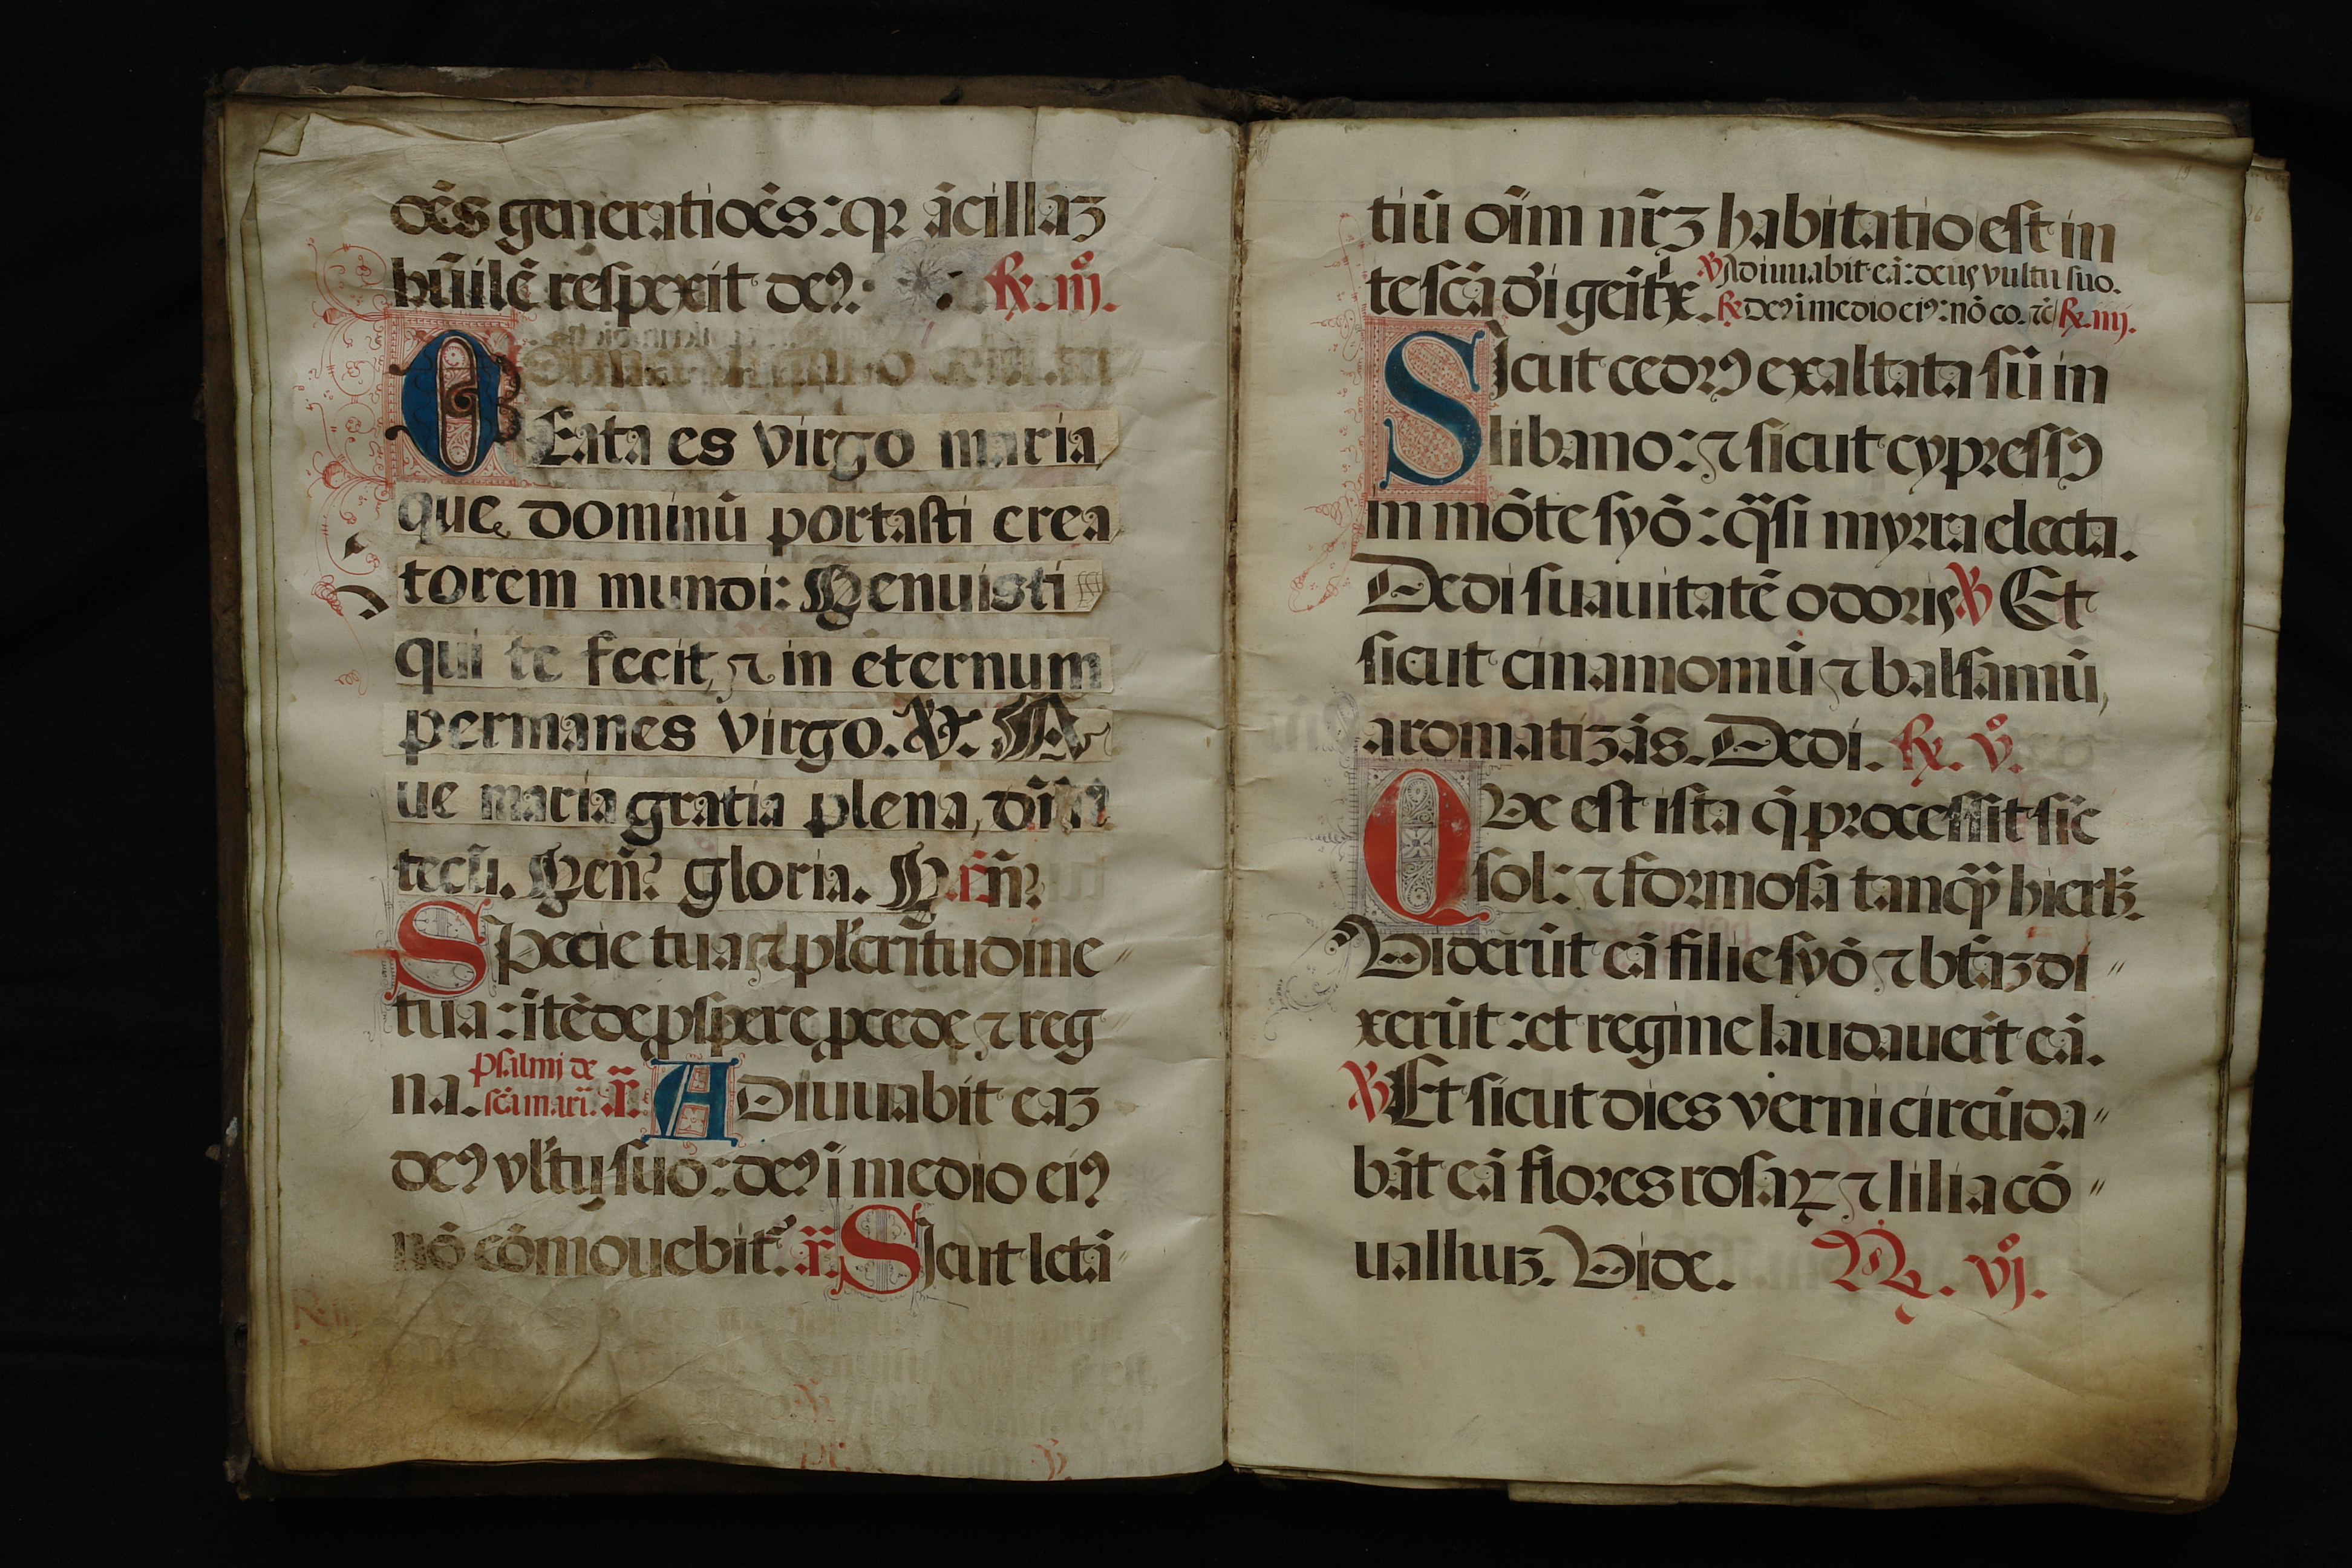 oēs generatiōes: qꝛ ācillāꝫ
hūilē respexit deꝰ: R̸. iijº.
BEata es virgo maria
que dominū portasti crea
torem mundi: Genuisti
qui te fecit, ⁊ in eternum
permanes virgo. ℣. A
ue maria gratia plena, dn̄s
tecū. Gen̄? gloria. Gen̄?
Specie tua ⁊ pl̄critudine
tua: ītēde ꝓspere ꝓcede ⁊ reg
na. psalmj de
scā mari. ā. Adiuuabit eaꝫ
deꝰ vl̄tu suo: deꝰ ī medio eiꝰ
nō cōmouebit᷑. ā. Sicut letā
tiū oīm nr̄ꝫ habitatio est in
te scā dī geītx̄. ℣ Adiuuabit eā: deus vultu suo.
R̸ deꝰ ī medio eiꝰ: nō co. ⁊c̄ R̸. iiij.
Sicut cedrꝰ exaltata sū in
libano: ⁊ sicut cypressꝰ
in mōte syō: q̄si myrra electa.
Dedi suauitatē odoris ℣ Et
sicut cinamomū ⁊ balsamū,
aromatizās. Dedi. R̸. vº.
Que est ista q̄ processit sīc
sol: ⁊ formosa tanqꝫ hierl̄ꝫ.
Viderūt eā filie syō ⁊ btāꝫ di
xerūt: et regine laudauer̄t eā.
℣ Et sicut dies verni circūda
bāt eā flores rosaꝝ ⁊ lilia cō
ualliuꝫ. Vide. R̸. vjº.